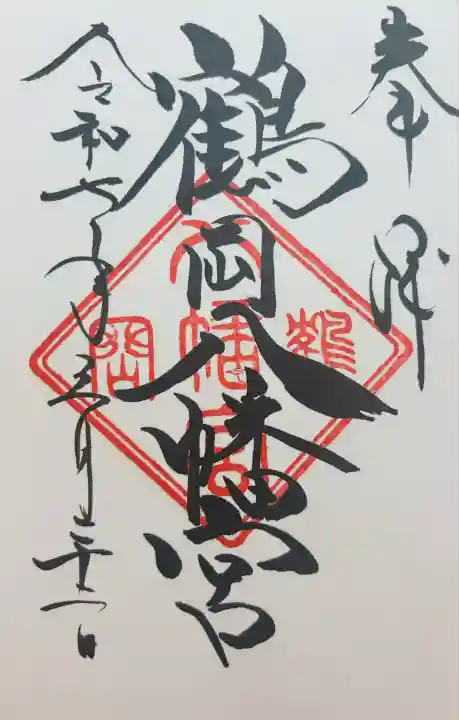 奉拝
鶴岡八幡宮
鶴
八幡宮
岡
令和七年五月二十一日